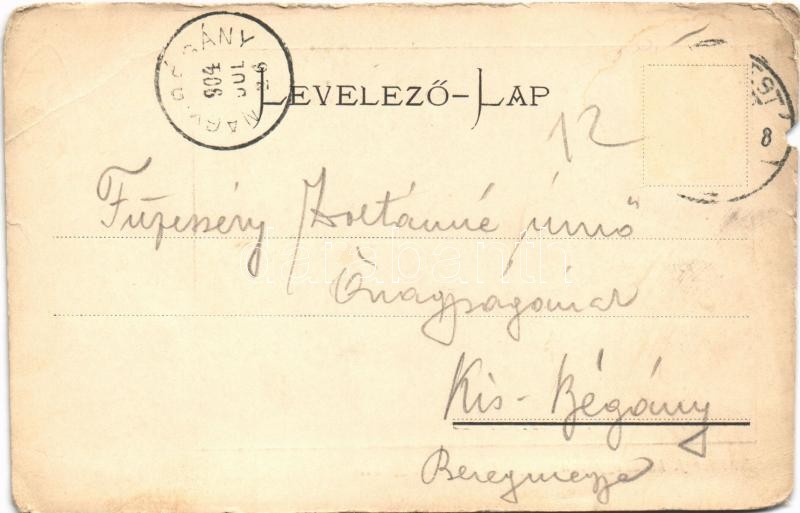 NAGY-BÉGÁNY
904
JUL
26
LEVELEZŐ-LAP
EST
8
12
Füzesséry Zoltánné úrnő
Őnagyságának
Kis-Bégány
Beregmegye
darabanth